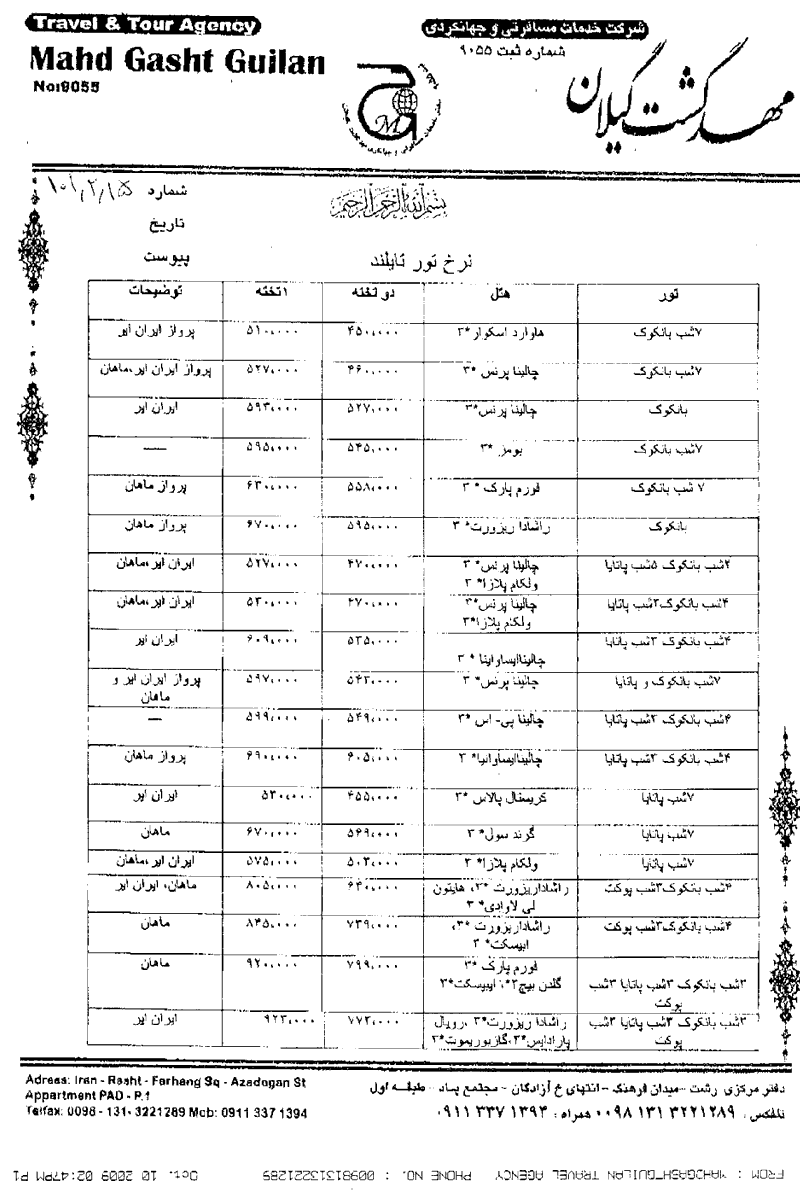 Travel & Tour Agency
شرکت خدمات مسافرتی و جهانگردی
Mahd Gasht Guilan
شماره ثبت ۹۰۵۵
No:9055
مهد گشت گیلان
شماره ۱۰۱٫۲٫۱۵
بسم الله الرحمن الرحیم
تاریخ
پیوست
نرخ تور تایلند
تور هتل دو تخته ۱تخته توضیحات
۷شب بانکوک هاوارد اسکوار *۳ ۴۵۰،۰۰۰ ۵۱۰،۰۰۰ پرواز ایران ایر
۷شب بانکوک چالینا پرنس *۳ ۴۶۰۰،۰۰۰ ۵۲۷،۰۰۰ پرواز ایران ایر،ماهان
بانکوک چالینا پرنس*۳ ۵۲۷،۰۰۰ ۵۹۳،۰۰۰ ایران ایر
۷شب بانکوک بومز *۳ ۵۴۵،۰۰۰ ۵۹۵،۰۰۰ ----
۷ شب بانکوک فورم پارک * ۳ ۵۵۸،۰۰۰ ۶۳۰،۰۰۰ پرواز ماهان
بانکوک راشادا ریزورت* ۳ ۵۹۵،۰۰۰ ۶۷۰،۰۰۰ پرواز ماهان
۲شب بانکوک ۵شب پاتایا چالینا پرنس* ۳ ۴۷۰،۰۰۰ ۵۲۷،۰۰۰ ایران ایر،ماهان
ولکام پلازا* ۳
۴شب بانکوک۳شب پاتایا چالینا پرنس*۳ ۴۷۰،۰۰۰ ۵۳۰،۰۰۰ ایران ایر،ماهان
ولکام پلازا*۳
۴شب بانکوک ۳شب پاتایا ۵۳۵،۰۰۰ ۶۰۹،۰۰۰ ایران ایر
چالیناایساواینا * ۳
۷شب بانکوک و پاتایا چالینا پرنس* ۳ ۵۴۳،۰۰۰ ۵۹۷،۰۰۰ پرواز ایران ایر و
ماهان
۴شب بانکوک ۳شب پاتایا چالینا پی- اس *۳ ۵۴۹،۰۰۰ ۵۹۹،۰۰۰ ---
۴شب بانکوک ۳شب پاتایا چالیناایساوانیا* ۳ ۶۰۵،۰۰۰ ۶۹۰،۰۰۰ پرواز ماهان
۷شب پاتایا کریستال پالاس *۳ ۴۵۵،۰۰۰ ۵۳۰،۰۰۰ ایران ایر
۷شب پاتایا گرند سول* ۳ ۵۶۹،۰۰۰ ۶۷۰،۰۰۰ ماهان
۷شب پاتایا ولکام پلازا* ۳ ۵۰۳،۰۰۰ ۵۷۵،۰۰۰ ایران ایر،ماهان
۴شب بانکوک۳شب پوکت راشاداریزورت *۳، هایتون ۶۴۰،۰۰۰ ۸۰۵،۰۰۰ ماهان، ایران ایر
لی لاوادی* ۳
۴شب بانکوک۳شب پوکت راشاداریزورت *۳، ۷۳۹،۰۰۰ ۸۴۵،۰۰۰ ماهان
ایبیسکت* ۳
فورم پارک *۳ ۷۹۹،۰۰۰ ۹۲۰،۰۰۰ ماهان
۳شب بانکوک ۳شب پاتایا ۳شب گلدن بیچ۳*، ایبیسکت*۳
پوکت
۳شب بانکوک ۳شب پاتایا ۳شب راشادا ریزورت*۳ ،رویال ۷۷۳،۰۰۰ ۹۲۳،۰۰۰ ایران ایر
پوکت پارادایس*۳،گازبوریموت*۳
Adress: Iran - Rasht - Farhang Sq - Azadegan St
Appartment PAD - P.1
Telfax: 0098 - 131- 3221289 Mob: 0911 337 1394
دفتر مرکزی رشت –میدان فرهنگ – انتهای خ آزادگان – مجتمع پاد – طبقه اول
تلفکس : ۰۰۹۸ ۱۳۱ ۳۲۲۱۲۸۹ همراه : ۰۹۱۱ ۳۳۷ ۱۳۹۴
FROM : MAHDGASHTGUILAN TRAVEL AGENCY PHONE NO. : 00981313221289 Oct. 10 2009 02:47PM P1